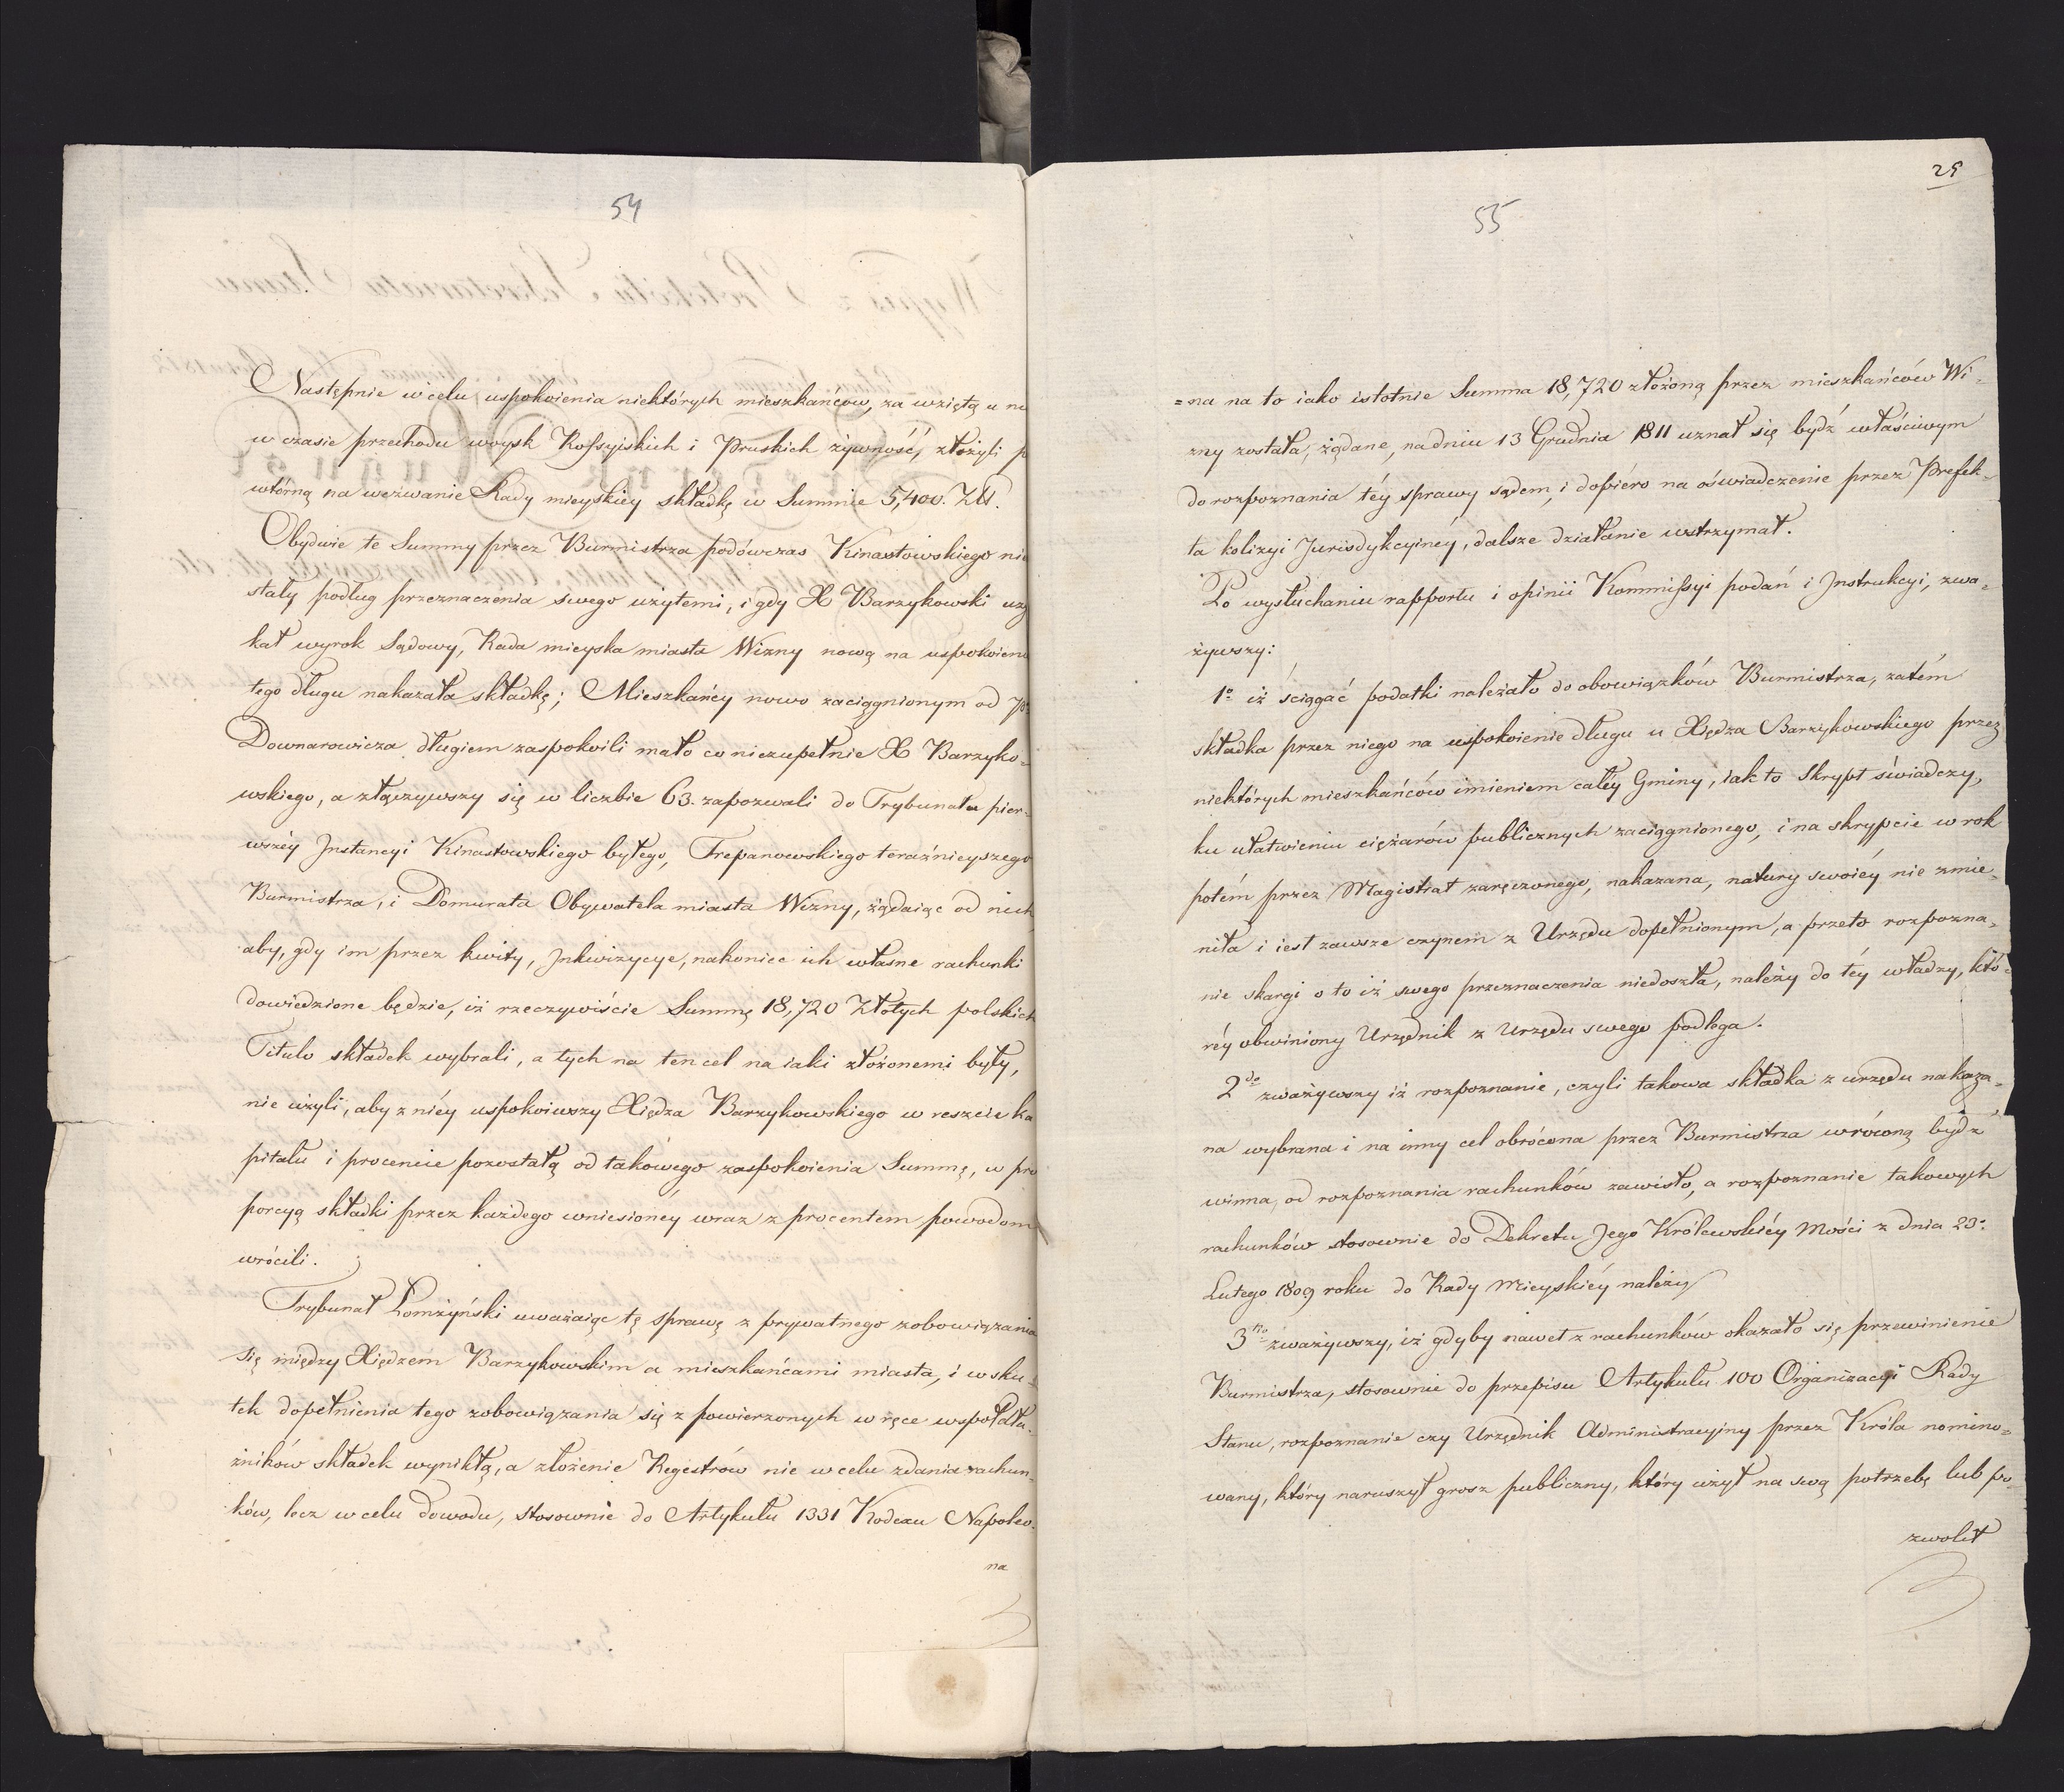 54
Następnie w celu uspokoienia niektórych mieszkańców, za wziętą u ni
w czasie przechodu woysk Rossyiskich i Pruskich żywność, złożyli p
wtórną na wezwanie Rady mieyskiey składkę w Summie 5,400. Zł.
Obydwie te Summy przez Burmistrza podówczas Kinastowskiego nie
stały podług przeznaczenia swego użytemi, i gdy X Barzykowski uzy
kał wyrok Sądowy, Rada mieyska miasta Wizny nową na uspokoieni
tego długu nakazała składkę; Mieszkańcy nowo zaciągnionym od
Downarowicza długiem zaspokoili mało co niezupełnie X Barzyko-
wskiego, a złączywszy się w liczbie 63. zapozwali do Trybunału pier-
wszéy Instancyi Kinastowskiego byłego, Trepanowskiego teraźnieyszego
Burmistrza, i Domurata Obywatela miasta Wizny, żądaiąc od nich
aby, gdy im przez kwity, Inkwizycye, nakoniec ich własne rachunki
dowiedzione będzie, iż rzeczywiście Summę 18,720 Złotych polskich
Titulo składek wybrali, a tych na ten cel na iaki złożonemi były,
nie użyli, aby z niéy uspokoiwszy Xiędza Barzykowskiego w reszcie ka
pitału i procencie pozostałą od takowego zaspokoienia Summę, w pro
porcyą składki przez każdego wniesionéy wraz z procentem powodom
wrócili.
Trybunał Łomżyński uważaiąc tę sprawę z prywatnego zobowiązania
się między Xiędzem Barzykowskim a mieszkańcami miasta, i w sku-
tek dopełnienia tego zobowiązania się z powierzonych w ręce wspołdłu-
żników składek wynikłą, a złożenie Regestrów nie w celu zdania rachun-
ków, lecz w celu dowodu, stosownie do Artykułu 1331 Kodexu Napoleo-
na
25
55
=na na to iako istotnie Summa 18,720 złożoną przez mieszkańców Wi-
zny została, żądane, na dniu 13 Grudnia 1811 uznał się bydź właściwym
do rozpoznania téy sprawy sądem, i dopiéro na oświadczenie przez Prefek-
ta kolizyi Jurisdykcyinéy, dalsze działanie wstrzymał.
Po wysłuchaniu rapportu i opinii Kommissyi podań i Instrukcyi, zwa-
żywszy:
1º iż ściągać podatki należało do obowiązków Burmistrza, zatém
składka przez niego na uspokoienie długu u Xiędza Barzykowskiego przez
niektórych mieszkańców imieniem całéy Gminy, iak to Skrypt świadczy,
ku ułatwieniu ciężarów publicznych zaciągnionego, i na skrypcie w rok
potém przez Magistrat zaręczonego, nakazana, natury swoiéy nie zmie-
niła i iest zawsze czynem z Urzędu dopełnionym, a przeto rozpozna-
nie skargi o to iż swego przeznaczenia niedoszła, należy do téy władzy, któ-
réy obwiniony Urzędnik z Urzędu swego podlega.
2do zważywszy iż rozpoznanie, czyli takowa składka z urzędu nakaza-
na wybrana i na inny cel obrócona przez Burmistrza wróconą bydź
winna, od rozpoznania rachunków zawisło, a rozpoznanie takowych
rachunków stosownie do Dekretu Jego Królewskiéy Mości z dnia 23º
Lutego 1809 roku do Rady Mieyskiéy należy
3tio zważywszy, iż gdyby nawet z rachunków okazało się przewinienie
Burmistrza, stosownie do przepisu Artykułu 100 Organizacyi Rady
Stanu, rozpoznanie czy Urzędnik Administracyiny przez Króla nomino-
wany, który naruszył grosz publiczny, który użył na swą potrzebę lub po-
zwolił